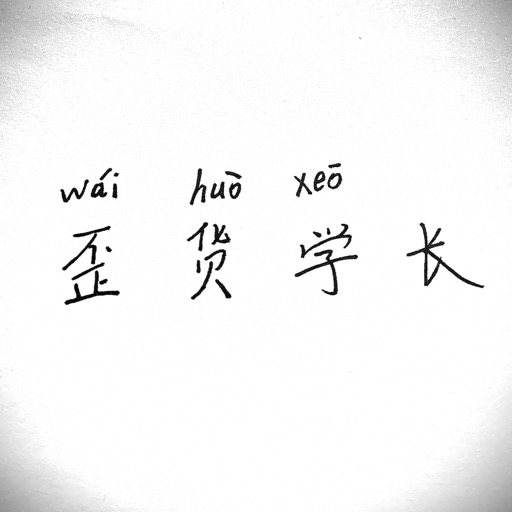 wái huò xeō
歪货学长